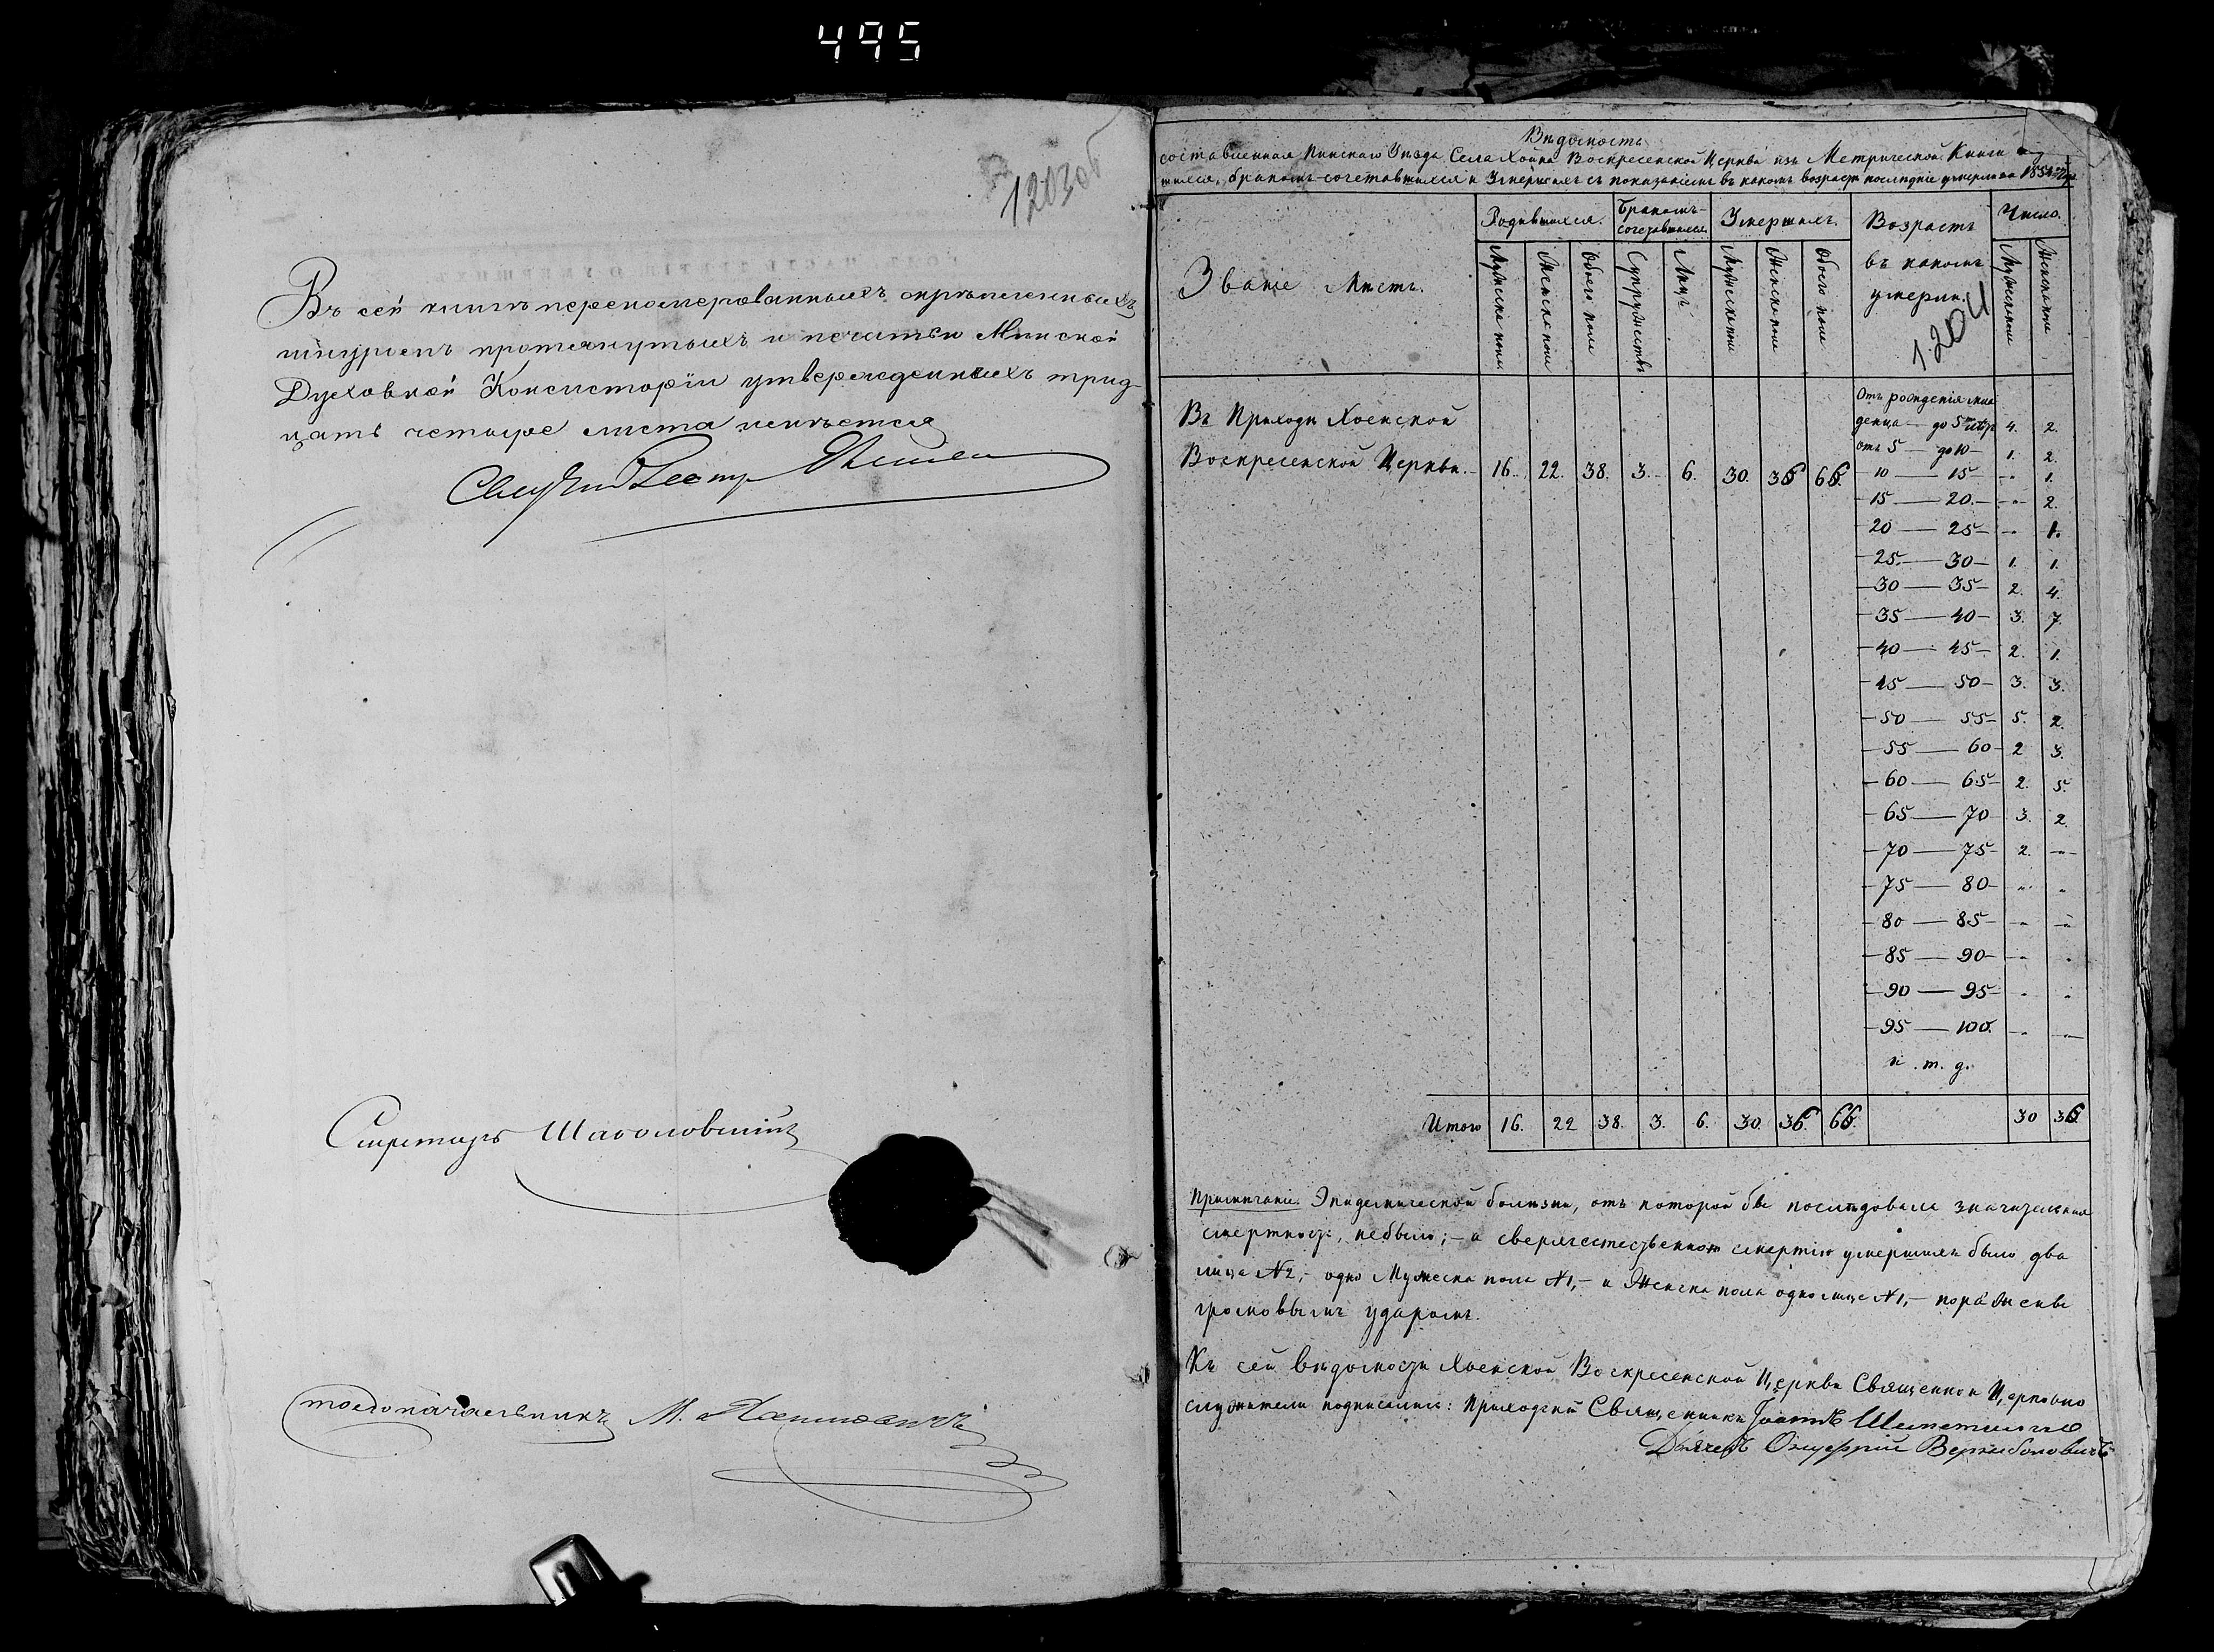 495
1203об
Въ сей книгѣ перепомерованныхъ скрѣпленныхъ
шнуромъ протянутыхъ и печатью Минской
Духовной Консисторіи утвержденныхъ трид-
цать четыре листа имѣется
Секретарь
Столоначальникъ М.
Вѣдомость
составленная Пинскаго Уѣзда Села Хойна Воскресенской Церкви изъ Метрической Книги о
шихся, бракомъ сочетавшихся и Умершихъ съ показаніемъ въ какомъ возрастѣ послѣдніе умерли за
Званіе Мѣстъ.
Родившихся.
Бракомъ-сочетавшихся
Умершихъ.
Возрастъ въ какомъ умерли.
Число.
Мужеска пола
Женска пола
Обоего пола
Супружествъ
Лицъ
Мужеска пола
Женска пола
Обоего пола
Мужеска пола
Женска пола
1204
Въ Приходѣ Хоенской
Воскресенской Церкви. 16. 22. 38. 3. 6. 30. 36 66.
Отъ рожденія мла
денца — до 5 4. 2.
отъ 5 — до 10 — 1. 2.
— 10 — 15 — „ 1.
— 15 — 20. — „ 2.
— 20 — 25 — „ 1.
— 25. — 30 — 1. 1.
— 30 — 35 — 2. 4.
— 35 — 40 — 3. 7.
— 40 — 45 — 2. 1.
— 45 — 50 — 3. 3.
— 50 — 55 — 5. 2.
— 55 — 60 — 2 3.
— 60 — 65 — 2. 5.
— 65 — 70 — 3. 2.
— 70 — 75 — 2. „
— 75 — 80 — „ „
— 80 — 85 — „ „
— 85 — 90 — „ „
— 90 — 95 — „ „
— 95 — 100. „ „
и. т. д.
Итого 16. 22 38. 3. 6. 30. 36. 66. 30 36
Примѣчаніе. Эпидемической болѣзни, отъ которой бы послѣдовала значительная
смертность, небыло; — а сверхестественною смертію умершихъ было два
лица №2, — одно Мужеска пола №1, — и Женска пола одно лице №1, — пораженъ
громовымъ ударомъ.
Къ сей вѣдомости Хоенской Воскресенской Церкви Священно и Церковно
служители подписались: Приходскій Священникъ Іоаннъ
Дьячекъ Онуфрій Вержболовичъ